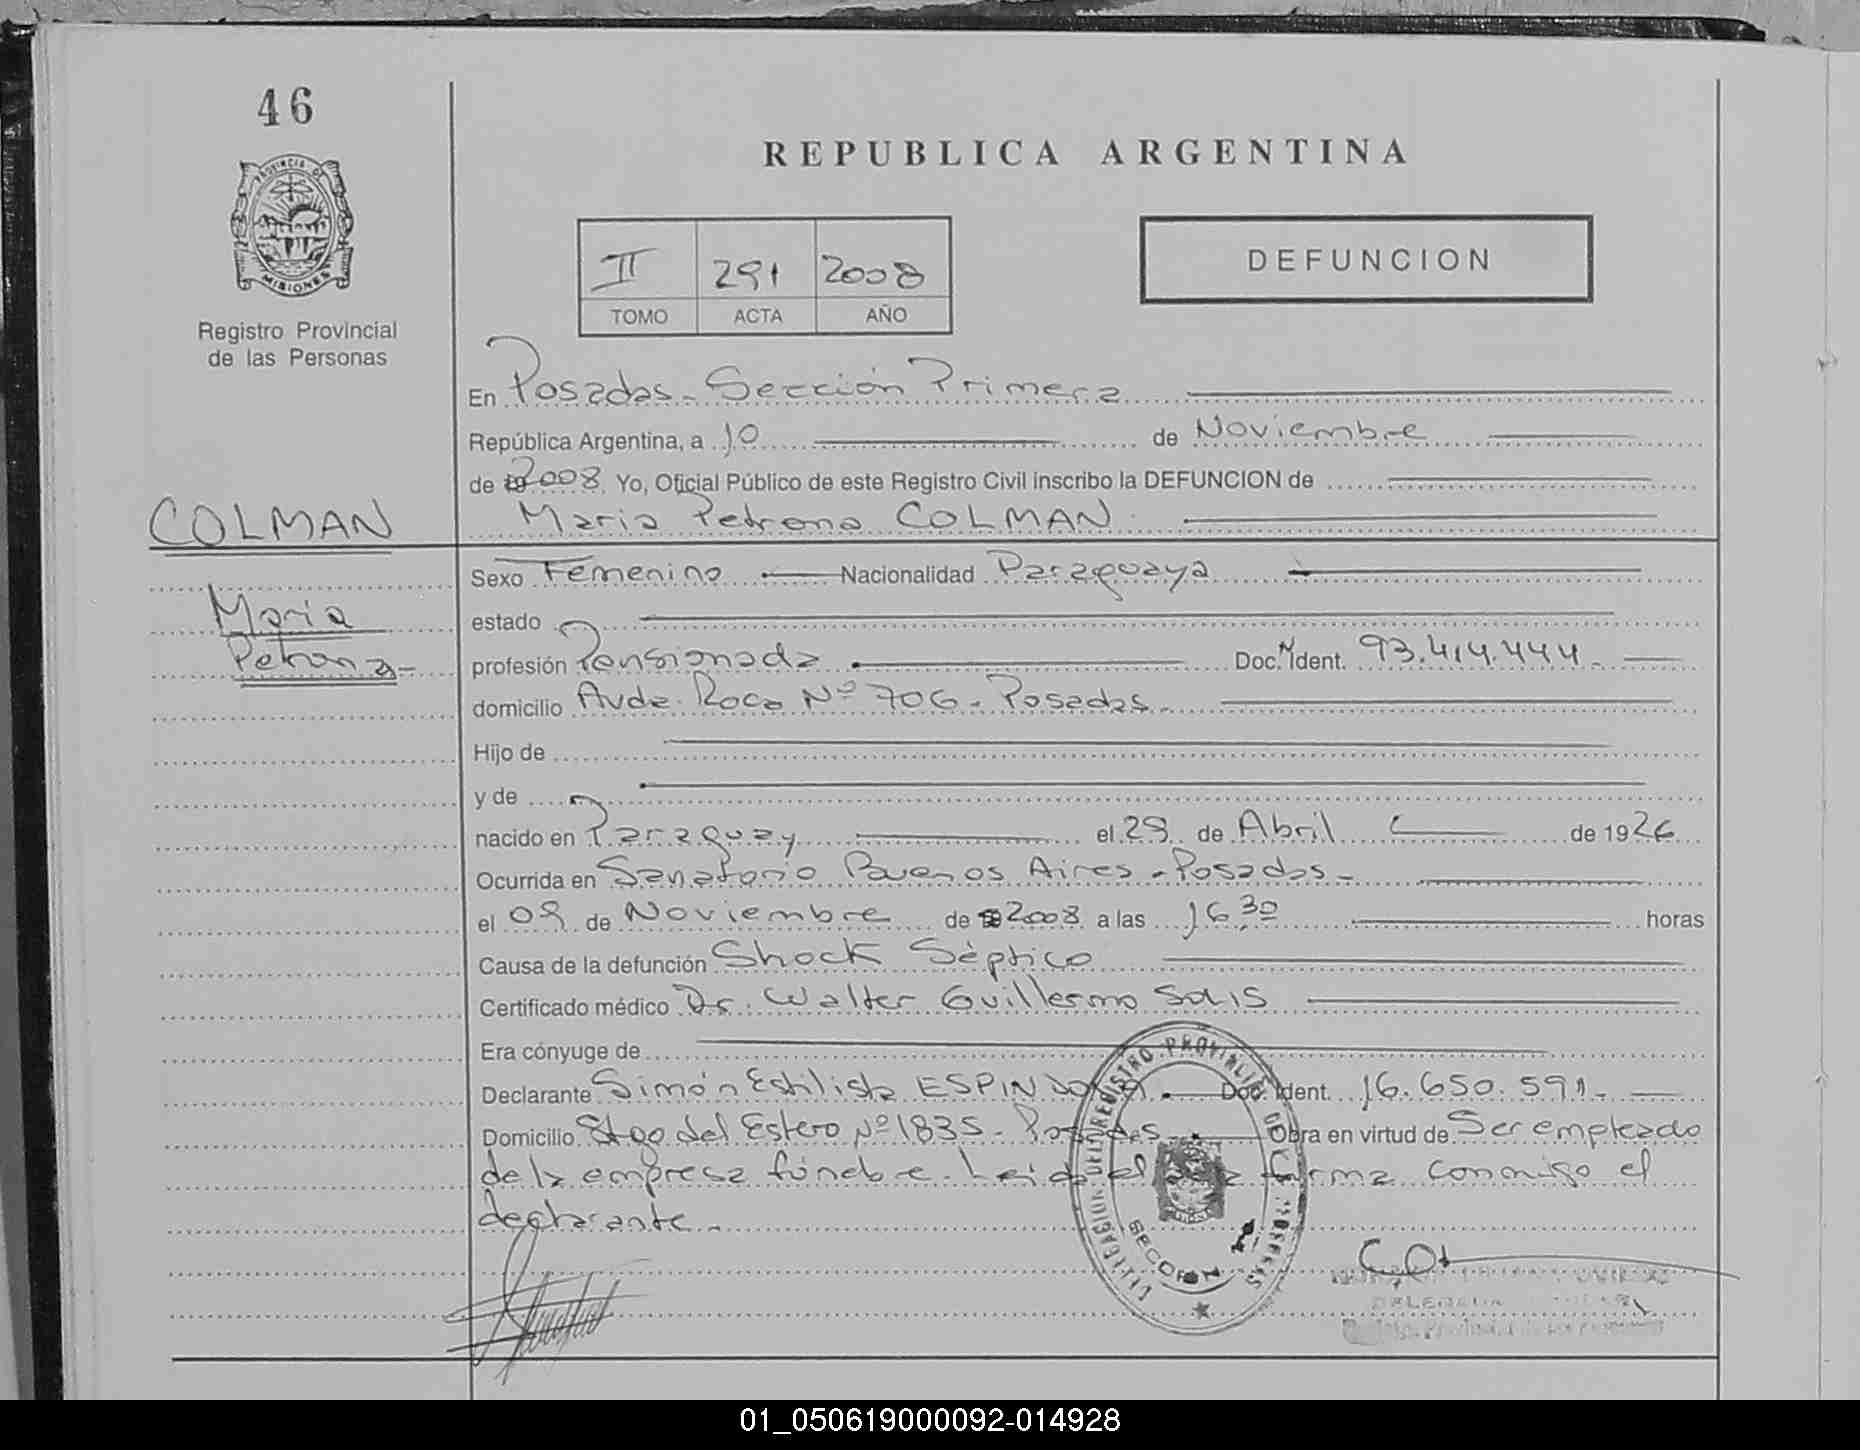 46
REPUBLICA ARGENTINA
PROVINCIA DE
MISIONES
Registro Provincial
de las Personas
II 291 2008
TOMO ACTA AÑO
DEFUNCION
En Posadas - Sección Primera
República Argentina, a 10 de Noviembre
de 2008 Yo, Oficial Público de este Registro Civil inscribo la DEFUNCION de
COLMAN
Maria Petrona COLMAN
Sexo Femenino Nacionalidad Paraguaya
Maria
estado
Petrona -
profesión Pensionada Doc. Ident. 93.414.444 -
domicilio Avda. Roca Nº 706 - Posadas -
Hijo de
y de
nacido en Paraguay el 29 de Abril de 1926
Ocurrida en Sanatorio Buenos Aires - Posadas -
el 09 de Noviembre de 2008 a las 16,30 horas
Causa de la defunción Shock Séptico
Certificado médico Dr. Walter Guillermo SOLIS
Era cónyuge de
Declarante Simón Estilista ESPINDOLA Doc. Ident. 16.650.591 -
Domicilio Stgo del Estero Nº 1835 - Posadas Obra en virtud de Ser empleado
de la empresa fúnebre. Leida el acta firma conmigo el
declarante -
REGISTRO PROVINCIAL DE LAS PERSONAS
SECCION
01_050619000092-014928